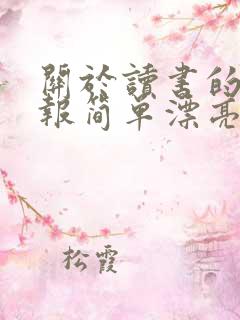 關於讀書的
報简单漂亮
松霞